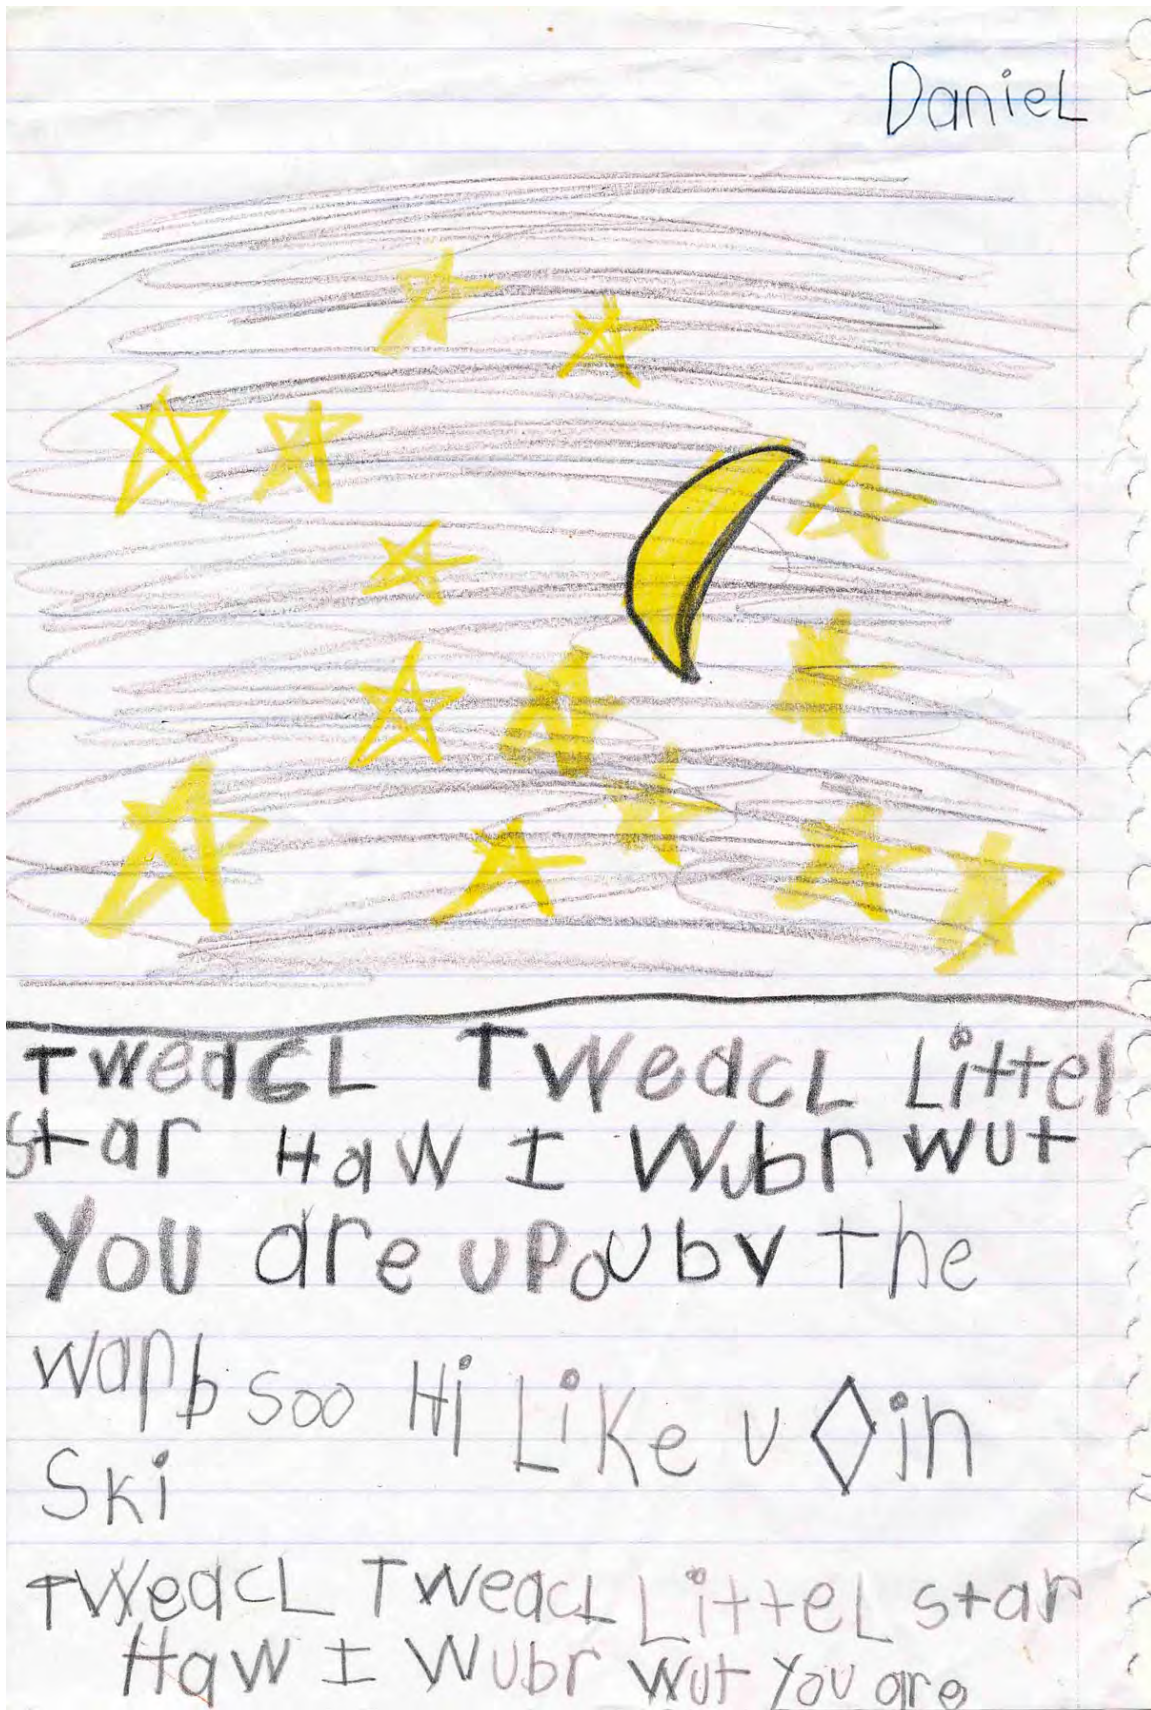 Daniel
Tweacl Tweacl Littel
star Haw I Wubr wut
You are upoubv the
warb soo Hi Like u ◊ in
Ski
Tweacl Tweacl Littel star
Haw I Wubr Wut You are